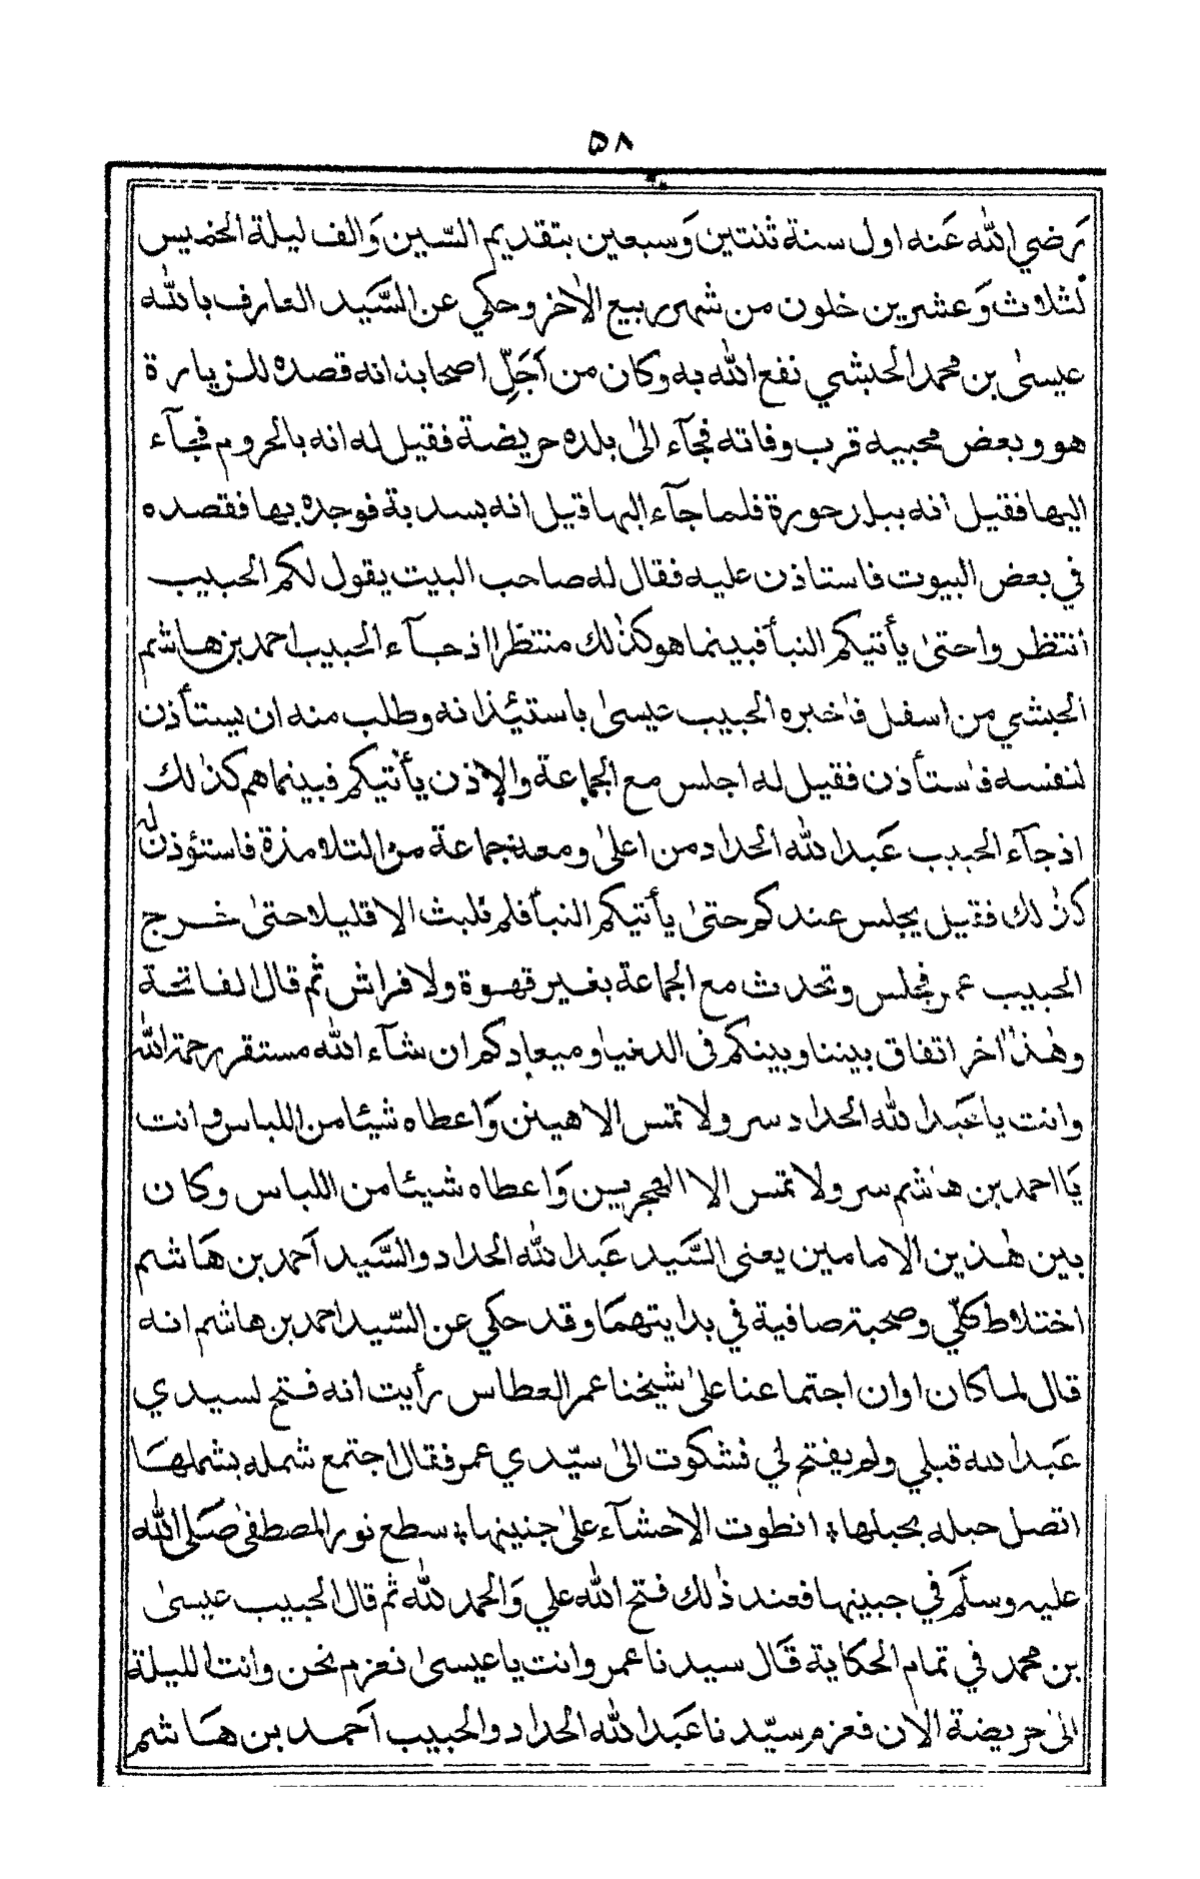 ٥٨
رضي الله عَنه اول سنة ثنتين وَسبعين بتقديم السّين وَالف ليلة الخميس
لثلاث وَعشرين خلون من شهر ربيع الاٰخر وحكي عن السَّيد العارف بالله
عيسىٰ بن محمد الحبشي نفع الله به وكان من اَجَلِّ اصحابه انه قصده للزيارة
هو وبعض محبيه قرب وفاته فجآء الىٰ بلده حريضة فقيل له انه بالحروم فجآء
اليها فقيل انه ببلد رحورة فلما جآء اليها قيل انه بسدبة فوجده بها فقصده
في بعض البيوت فاستاذن عليه فقال له صاحب البيت يقول لكم الحبيب
انتظروا حتىٰ يأتيكم النبأ فبينما هو كذٰلك منتظرا اذ جآء الحبيب احمد بن هاشم
الحبشي من اسفل فاخبره الحبيب عيسىٰ باستيئذانه وطلب منه ان يستأذن
لنفسه فاستأذن فقيل له اجلس مع الجماعة والإذن يأتيكم فبينما هم كذٰلك
اذ جآء الحبيب عَبد الله الحداد من اعلىٰ ومعه جماعة من التلامذة فاستؤذن له
كذٰلك فقيل يجلس عندكم حتىٰ يأتيكم النبأ فلم نلبث الا قليلا حتىٰ خرج
الحبيب عمر فجلس وتحدث مع الجماعة بغير قهوة ولا فراش ثم قال الفاتحة
وهٰذا اخر اتفاق بيننا وبينكم فى الدنيا وميعادكم ان شآء الله مستقر رحمة الله
وانت يا عَبد الله الحداد سر ولا تمس الا هينن وَاعطاه شيئا من اللباس وانت
يَا احمد بن هاشم سر ولا تمس الا الهجرين وَاعطاه شيئا من اللباس وكان
بين هٰذين الامامين يعنى السَّيد عَبد الله الحداد والسَّيد اَحمد بن هَاشم
اختلاط كلّي وصحبة صافية في بدايتهمَا وقد حكي عن السّيد احمد بن هاشم انه
قال لما كان اوان اجتماعنا علىٰ شيخنا عمر العطاس رأيت انه فتح لسيدي
عَبد الله قبلي ولم يفتح لي فشكوت الىٰ سيّدي عمر فقال اجتمع شمله بشملهَا
اتصل حبله بحبلها؛ انطوت الاحشآء علىٰ جنينها؛ سطع نور المصطفىٰ صَلى الله
عليه وسلّم في جبينها فعند ذٰلك فتح الله علي وَالحمد لله ثم قال الحبيب عيسىٰ
بن محمد في تمام الحكاية قَال سيدنا عمر وانت يا عيسىٰ نعزم نحن وانت الليلة
الىٰ حريضة الاٰن فعزم سيّدنا عَبد الله الحداد والحبيب اَحمد بن هَاشم